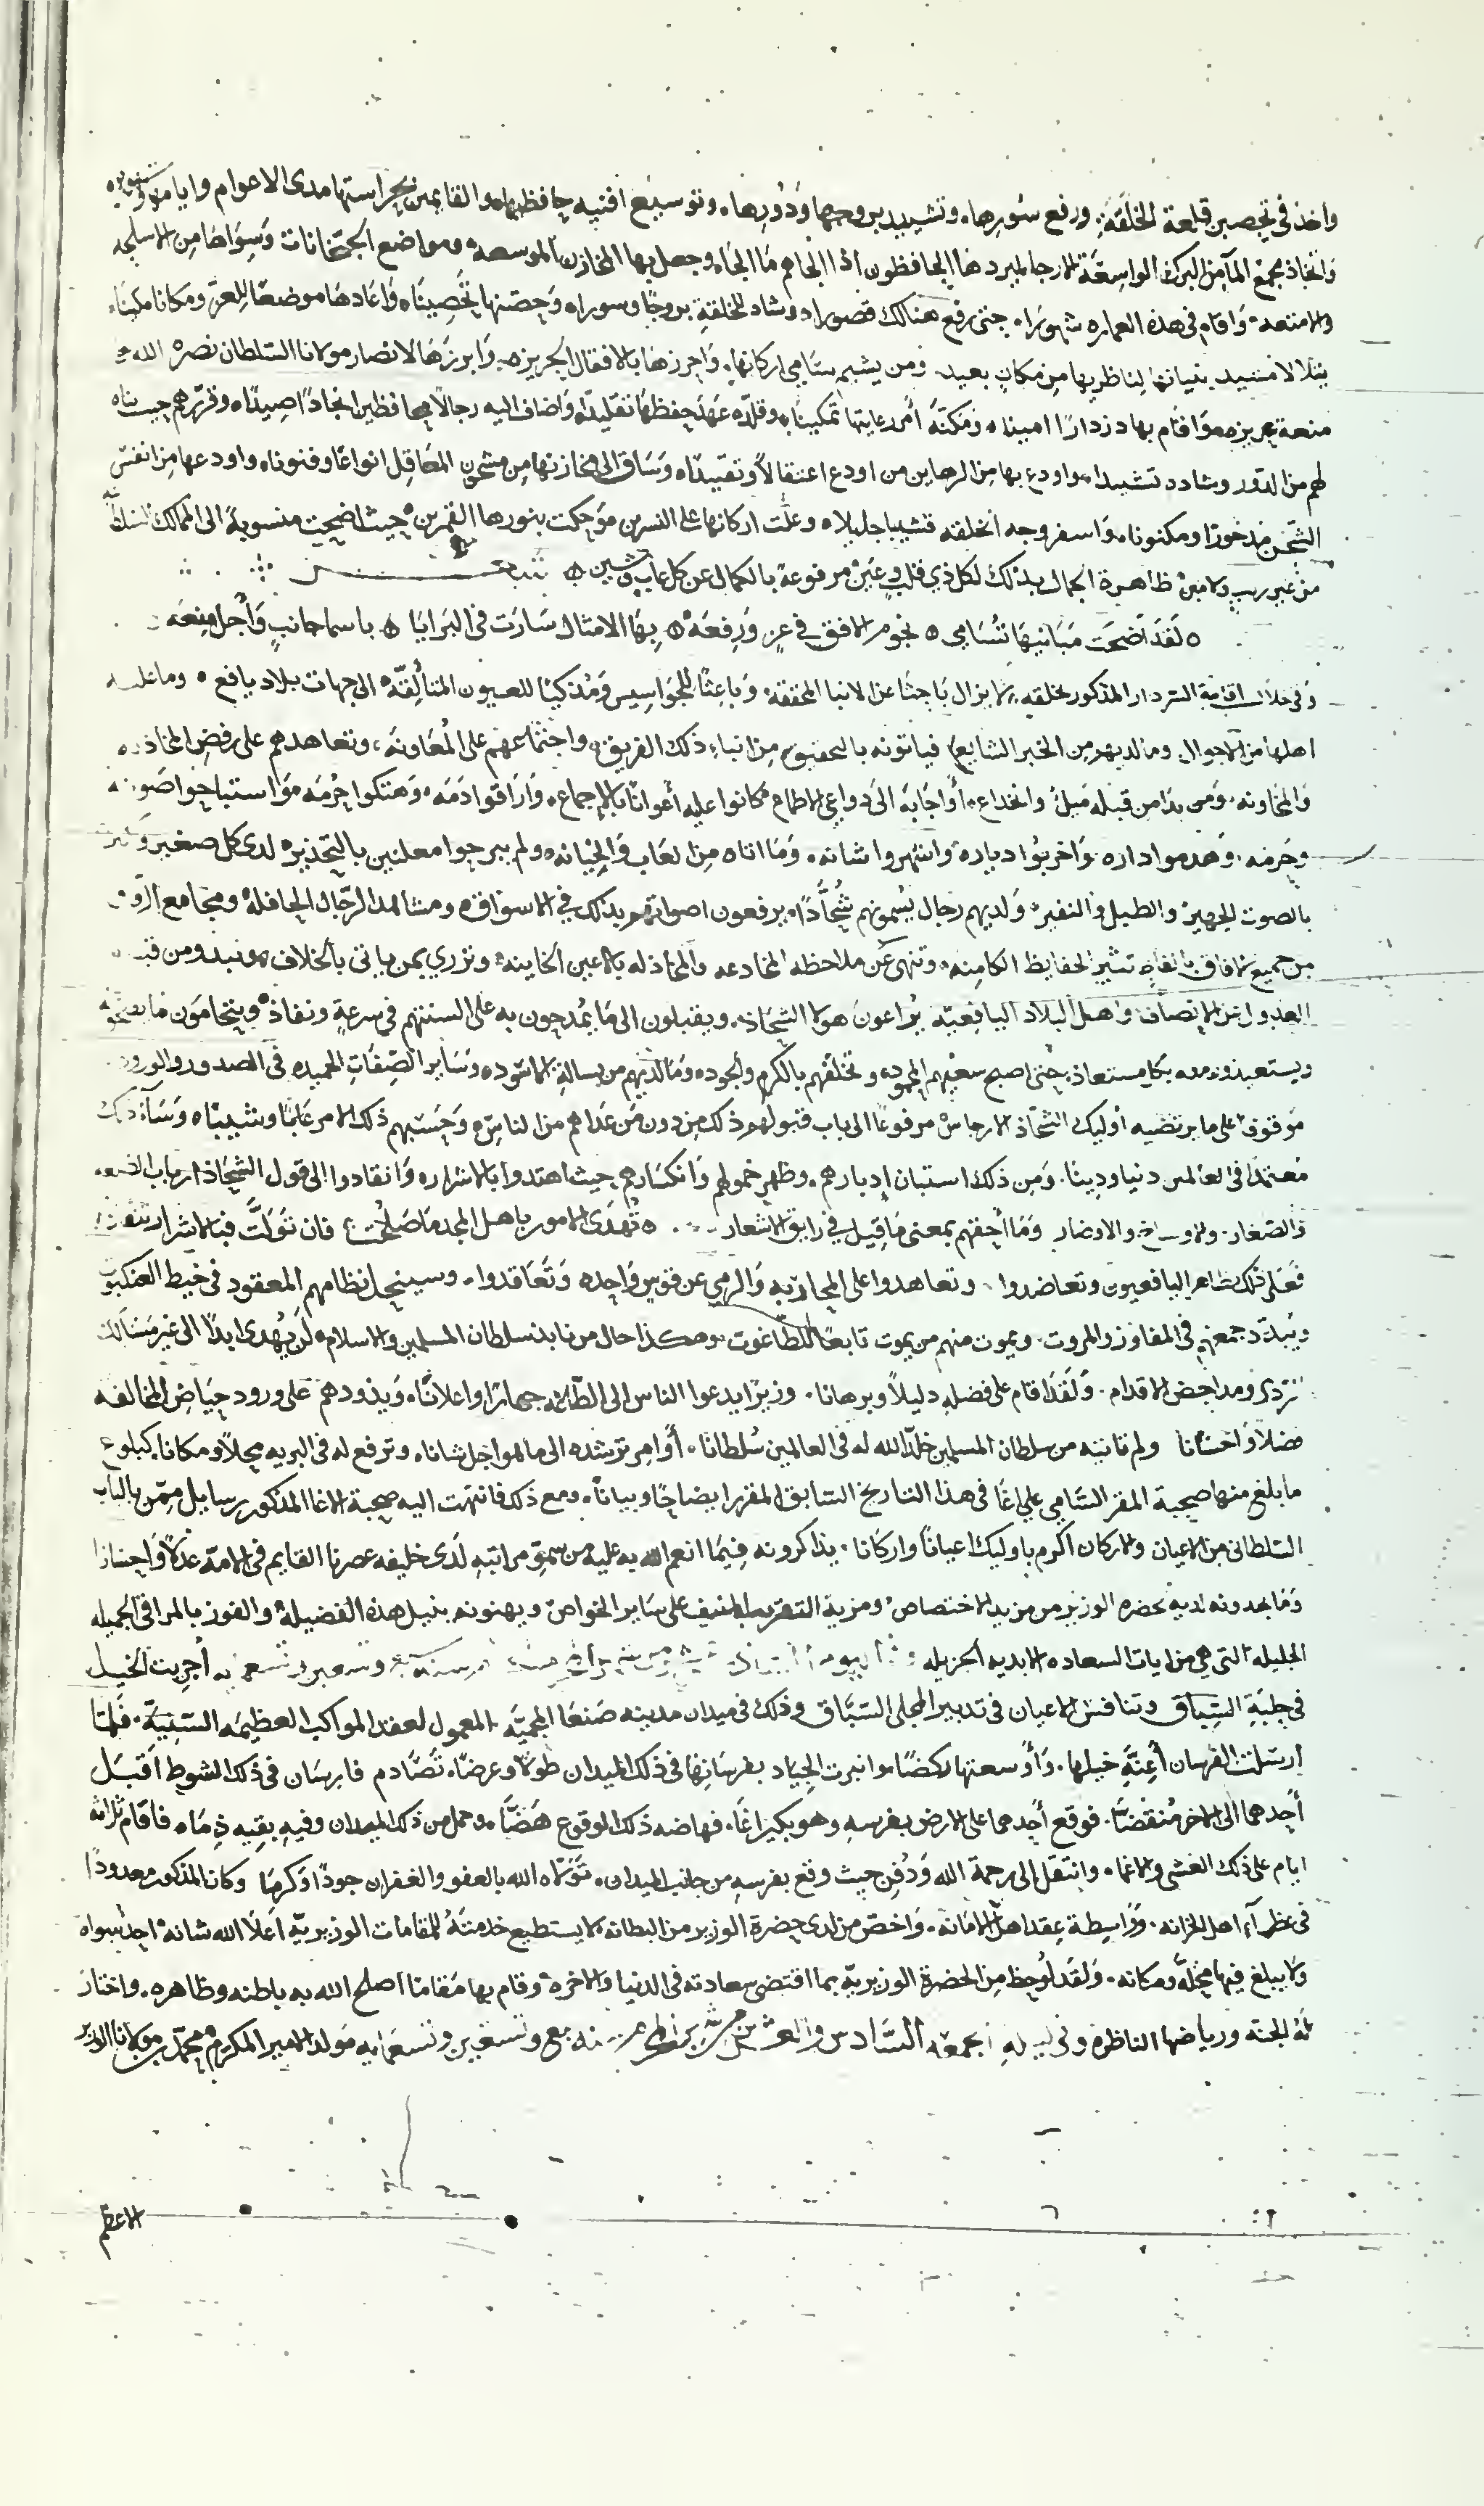 واخذ في تحصين قلعة الخلقة ورفع سورها وتشييد بروجها ودورها وتوسيع افنيه حافظيها والقايمين بحراستها مدى الاعوام وايامها وشهورها
واتخاذ مجمع المآ من البرك الواسعة للارجا ليردها الحافظون اذا الجاهم ما الجاه وجعل بها المخازن الموسعه ومواضع الجبخانات وسواها من الاسلحه
والامتعه واقام في هذه العماره شهورا حتى رفع هنالك قصورا وشاد للخلقة بروجا وسورا وحصنها تحصينا واعادها موضعا للعز ومكانا مكينا
بنيانها لناظريها من مكان بعيد ومن يشيم سامي اركانها واحرزها بالاقفال الحريزه وابرزها لانصار مولانا السلطان نصره الله
منعة عزيزه واقام بها دزدارا امينا ومكنه أمر رعايتها تمكينا وقلده عهد حفظها تقليدا واضاف اليه رجالا محافظين انجادا اصيدا وقررهم حيث بناه
لهم من الدور وشاده تشييدا واودع بها من الرهاين من اودع اعتقالا وتقييدا وساق الى مخازنها من مشحون المعاقل انواعا وفنونا واودعها من انفس
الشحن مذخورا ومكنونا واسفر وجه الخلقه قشيبا جليلا وعلت اركانها على النسرين وحكت بنورها القمرين حيث اضحت منسوبة الى الممالك السلطانيه
من غير ريب ولامين ظاهرة الجمال بذلك لكل ذي قلب وعين مرفوعة بالكمال عن كل عاب وشين شعر
لقد اضحت مبانيها تسامى نجوم الافق في عز ورفعه بها الامثال سارت في البرايا باسما جانب وأجل منعه
وفي خلال اقامة السردار المذكور بخلقه لا يزال باحثا عن الانبا المحققه وباعثا للجواسيس ومذكيا للعيون المتألقه الى جهات بلاد يافع وما عليه
اهلها من الاحوال وما لديهم من الخبر الشايع فياتونه بالتحقيق من انباء ذلك الفريق واجتماعهم على المعاونه وتعاهدهم على رفض المخاذله
والمخاونه ومن بدا من قبله ميل وانخداع أو اجابة الى دواعي الاطماع كانوا عليه أعوانا بالاجماع واراقوا دمه وهتكوا حرمه واستباحوا صونه
وحرمه وهدموا داره واخربوا دياره واشهروا شانه وما اتاه من العاب والخيانه ولم يبرحوا معلنين بالتحذير لدى كل صغير وكبير
بالصوت الجهير والطبل والنفير ولديهم رجال يسمونهم شحاذا يرفعون اصواتهم بذلك في الاسواق ومشاهد الرجال الحافله ومجامع
من جميع الافاق بالفاظ تثير الحفايظ الكامنه وتنهى عن ملاحظه المخادعه والمخاذله بالاعين الخاينه وتزري بمن ياتى بالخلاف ويبدو من قبله
العدوا عن الانصاف واهل البلاد اليافعيه يراعون هولا الشحاذ ويقبلون الى ما يمدحون به على السنتهم في سرعة ونفاذ ويتحامون ما يقبحونه
ويستعيذون منه بكل مستعاذ حتى اصبح سعيهم المحمود وتخلقهم بالكرم والجود وما لديهم من بسالة الاسود وساير الصفات الحميده في الصدور والورود
موقوفا على ما يرتضيه اوليك الشحاذ الارجاس مرفوعا الى باب قبولهم ذلك من دون من عداهم من الناس وحسبهم ذلك الامر عابا وشينا وسآء ذلك
معتمدا في العالمين دنيا ودينا ومن ذلك استبان ادبارهم وظهر خمولهم وانكسارهم حيث اهتدوا بالاشرار وانقادوا الى قول الشحاذ ارباب الضعه
والصغار والاوساخ والاوضار وما أحقهم بمعنى ما قيل في رايق الاشعار تهدى الامور باهل المجد ما صلحت فان تولت فبالاشرار تنقاد
فعلى ذلك تظاهر اليافعيون وتعاضدوا وتعاهدوا على المحاربه والرمي عن قوس واحده وتعاقدوا وسينحل نظامهم المعقود في خيط العنكبوت
ويبدد جمعهم في المفاوز والمروت ويموت منهم من يموت تابعا للطاغوت وهكذا حال من نابذ سلطان المسلمين والاسلام لن يهدى ابدا الى غير مسالك
تردي ومداحض الاقدام ولقد اقام على فضله دليلا وبرهانا وزيرا يدعوا الناس الى الطاعه جهارا واعلانا ويذودهم على ورود حياض المخالفه
فضلا واحسانا ولم تاته من سلطان المسلمين خلد الله له في العالمين سلطانا أوامر ترشده الى ما هو اجل شانا وترفع له في البريه محلا ومكانا كبلوغ
ما بلغ منها صحبة المقر السامي علي اغا في هذا التاريخ السابق المقرر ايضاحا وبيانا ومع ذلك فانتهت اليه صحبة الاغا المذكور رسايل ممن بالباب
السلطاني من الاعيان والاركان اكرم باوليك اعيانا واركانا يذاكرونه فيما انعم الله به عليه من سمو مراتبه لدى خليفه عصرنا القايم في الامة عدلا واحسانا
وما يجدونه لديه لحضره الوزير من مزيد الاختصاص ومزية التقريب المنيف على ساير الخواص ويهنونه بنيل هذه الفضيلة والفوز بالمراقي الجميله
الجليله التي هي من ايات السعاده الابديه الجزيله وتسعين وتسعمايه أجريت الخيل
في حلبة السباق وتنافس الاعيان في تدبير المجلى السباق وذلك في ميدان مدينه صنعا المحميه المعمول لعقد المواكب العظيمه السنيه فلما
ارسلت الفرسان أعنة خيلها وأوسعتها ركضا وانبرت الجياد بفرسانها في ذلك الميدان طولا وعرضا تصادم فارسان في ذلك الشوط اقبل
أحدهما الى الاخر منقضا فوقع أحدهما على الارض بفرسه وهو بكير اغا فهاضه ذلك الوقوع هضا وحمل من ذلك الميدان وفيه بقيه ذماه فاقام ثلاثه
ايام على ذلك الغشي والاغما وانتقل الى رحمة الله ودفن حيث وقع بفرسه من جانب الميدان تولاه الله بالعفو والغفران جودا وكرما وكان المذكور معدودا
في عظمآء اهل الخزانه وواسطة عقد اهل الامانه واخص من لدى حضرة الوزير من البطانه لا يستطيع خدمته للمقامات الوزيريه اعلا الله شانه احد سواه
ولا يبلغ فيها محله ومكانه ولقد لوحظ من الحضرة الوزيريه بما اقتضى سعادته في الدنيا والاخره وقام بها مقاما اصلح الله به باطنه وظاهره واختار
له الجنة ورياضها الناظره وفي ليلة الجمعه السادس والعشرين من شهر سنه سبع وتسعين وتسعمايه مولد الامير المكرم محمد بن مولانا الوزير
الاعظم